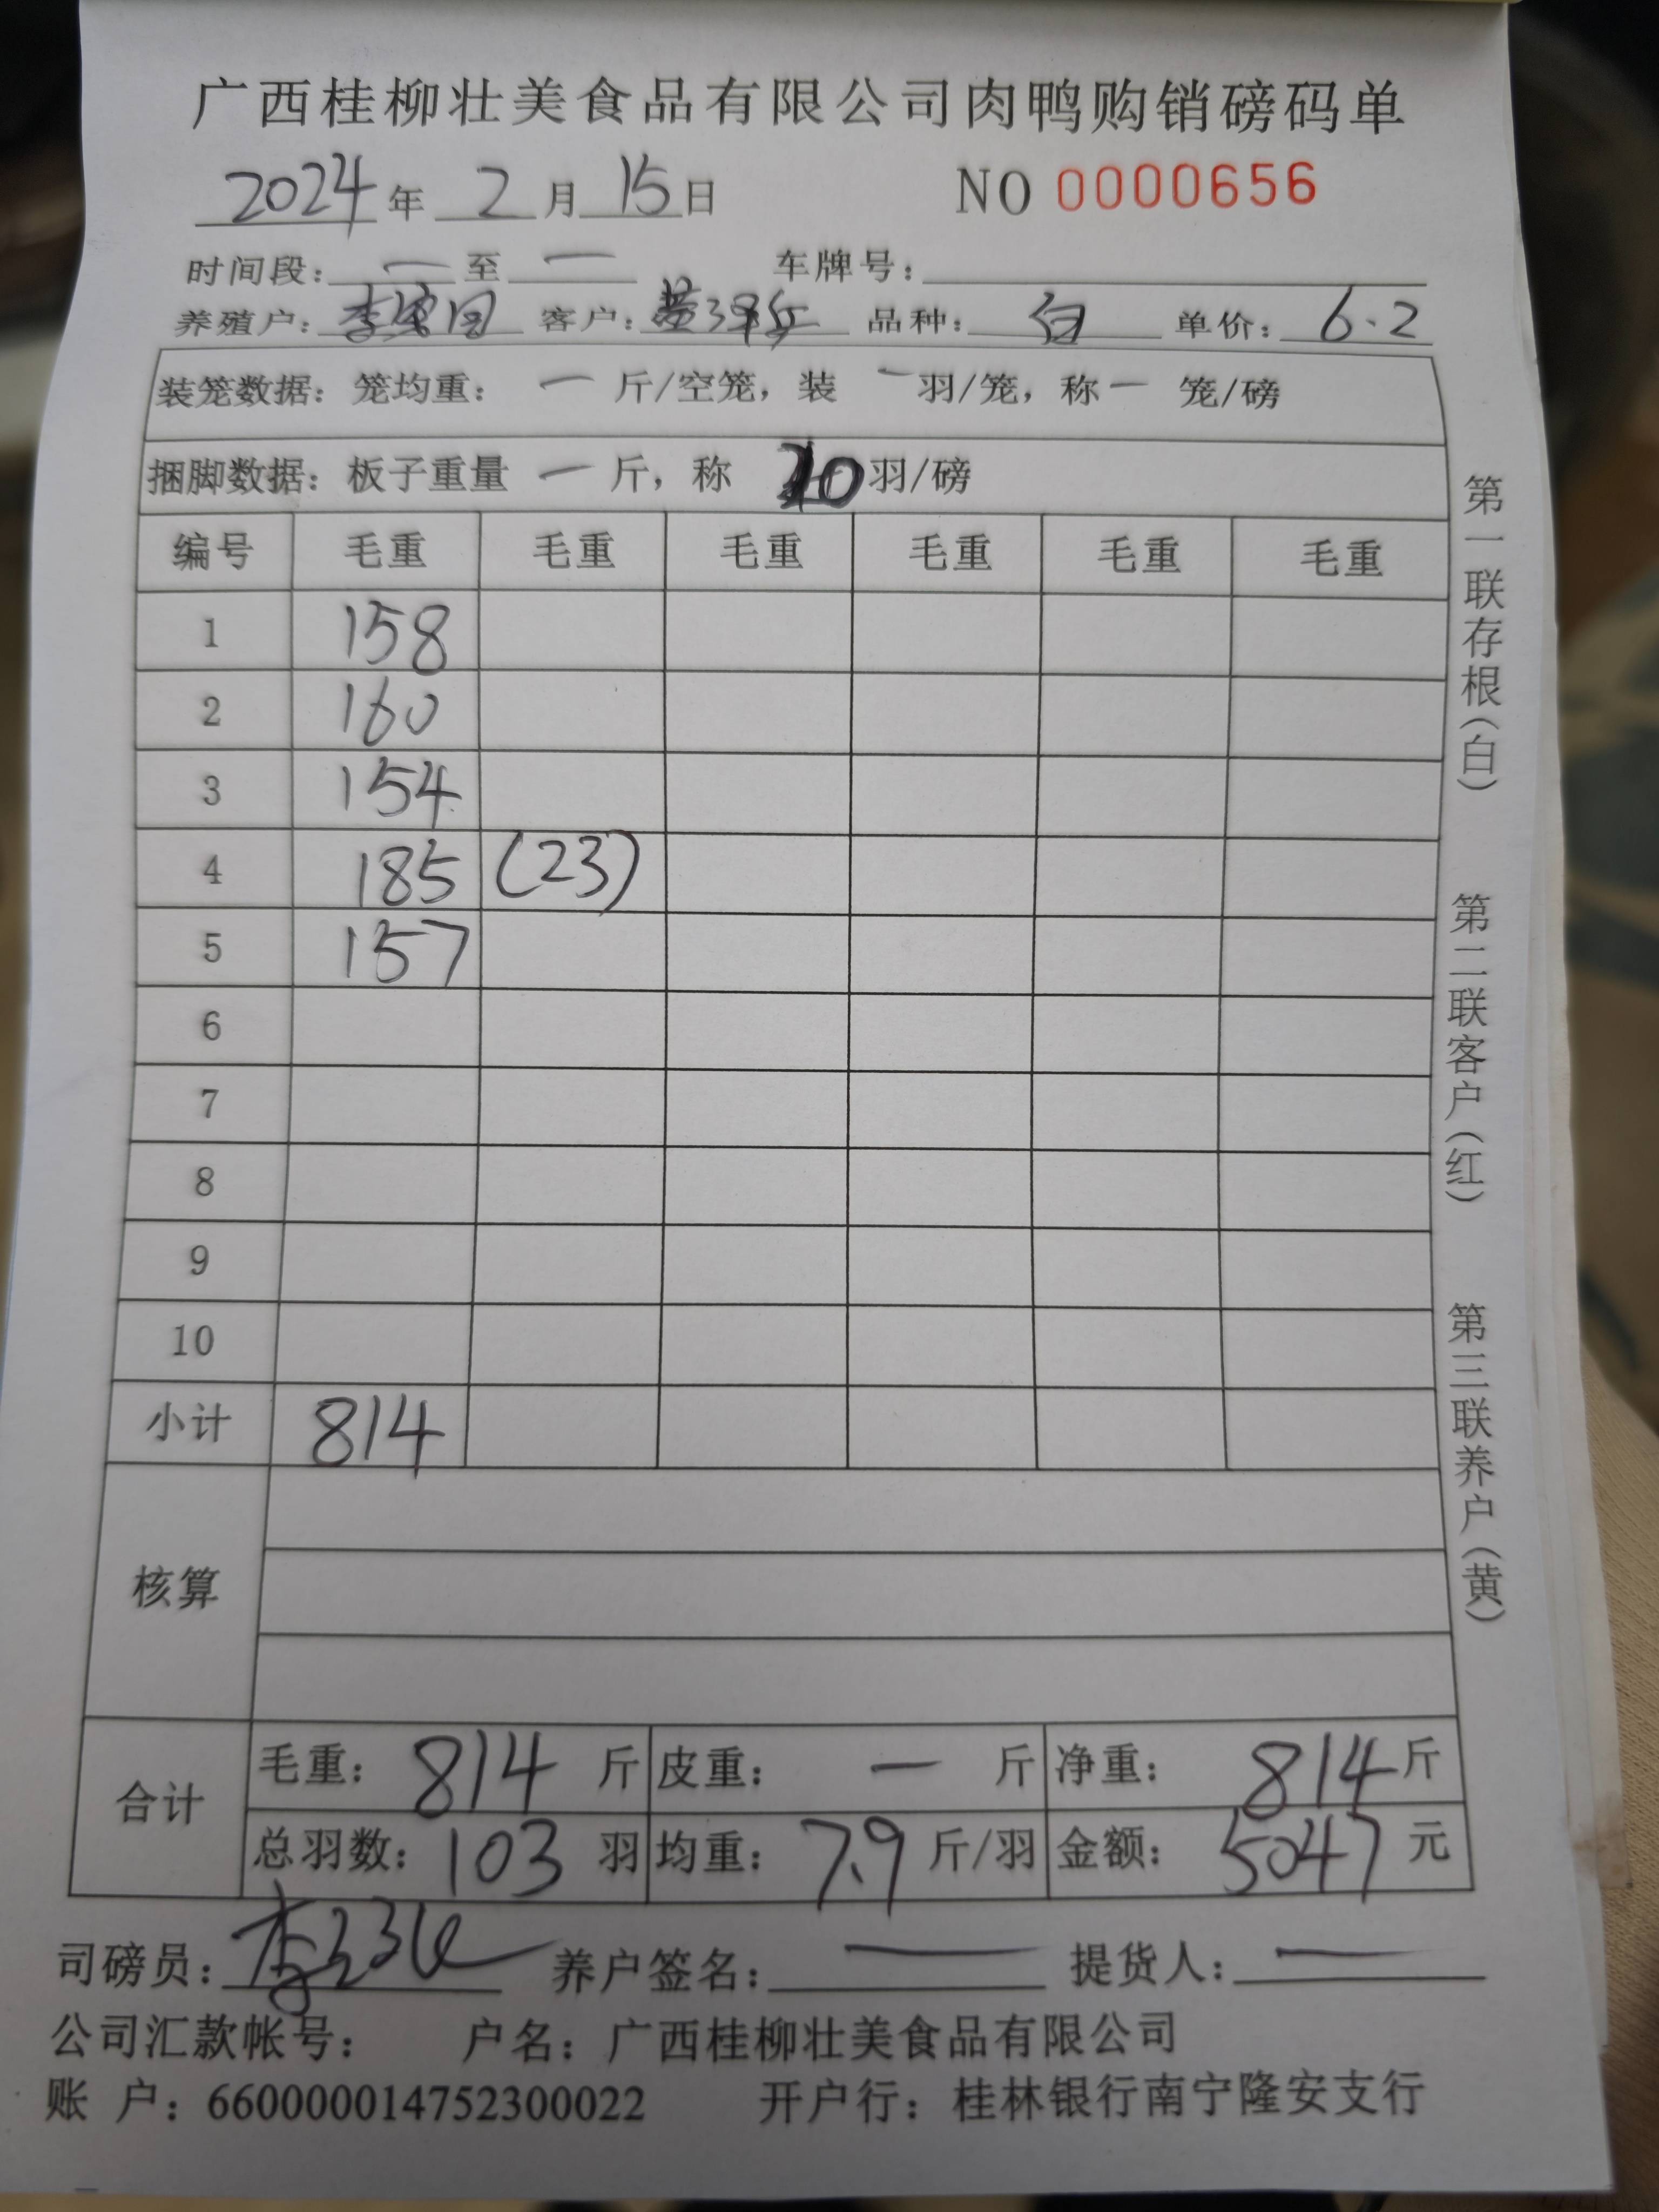 广西桂柳壮美食品有限公司肉鸭购销磅码单
2024年 2月 15日 NO 0000656
时间段：一 至 一 车牌号：
养殖户：李 客户：黄泽 品种：白 单价：6.2
装笼数据：笼均重：一 斤/空笼，装 一 羽/笼，称 一 笼/磅
捆脚数据：板子重量 一 斤，称 20 羽/磅
编号 毛重 毛重 毛重 毛重 毛重 毛重
1 158
2 160
3 154
4 185 (23)
5 157
6
7
8
9
10
小计 814
核算
合计 毛重：814 斤 皮重：一 斤 净重：814 斤
总羽数：103 羽 均重：7.9 斤/羽 金额：5047 元
司磅员：李 养户签名：一 提货人：一
公司汇款帐号： 户名：广西桂柳壮美食品有限公司
账 户：660000014752300022 开户行：桂林银行南宁隆安支行
第一联存根（白）
第二联客户（红）
第三联养户（黄）